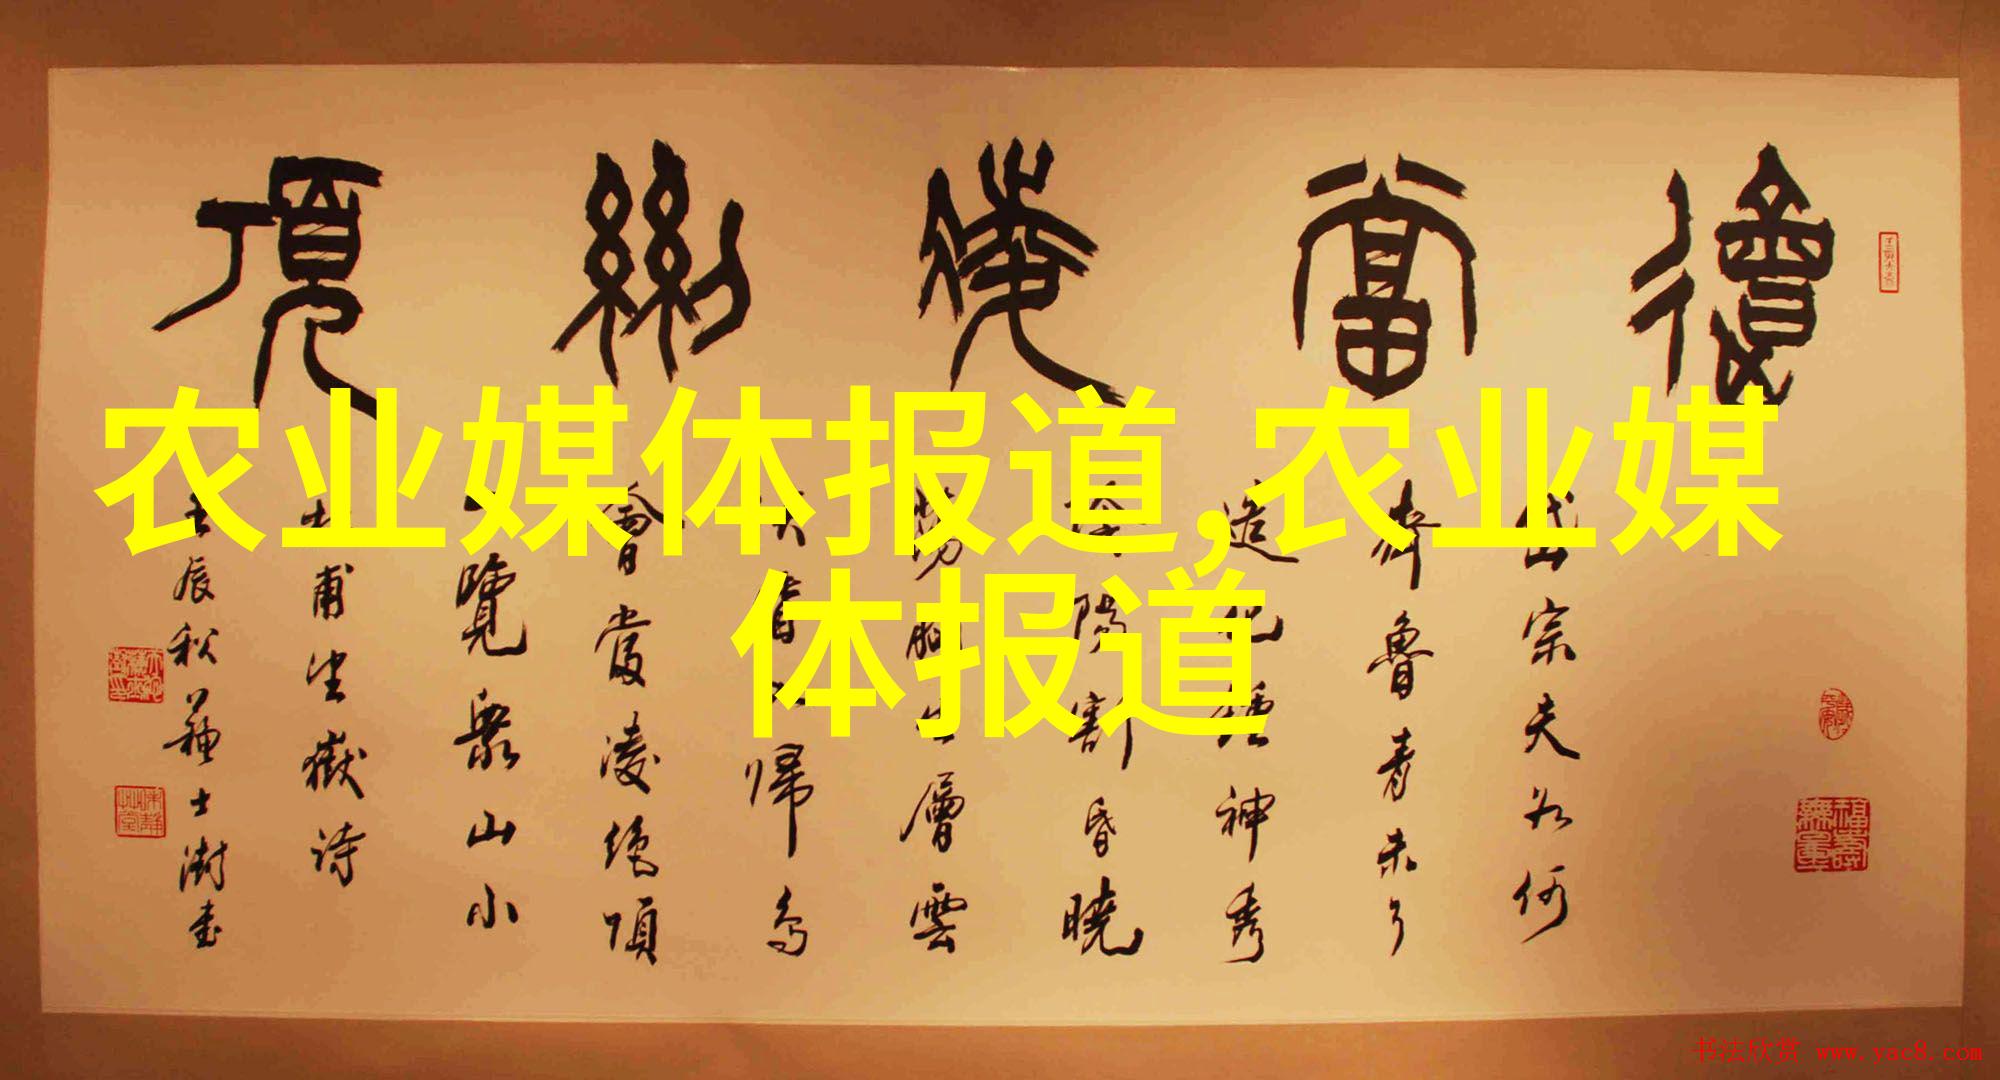 會當凌絕頂
农业媒体报道,农业媒
体报道
岱宗夫如何
齊魯青未了
造化鍾神秀
陰陽割昏曉
蕩胸生層雲
決眥入歸鳥
會當凌絕頂
一覽眾山小
杜甫望嶽詩
壬辰秋蘇士澍書
书法欣赏 www.yac8.com